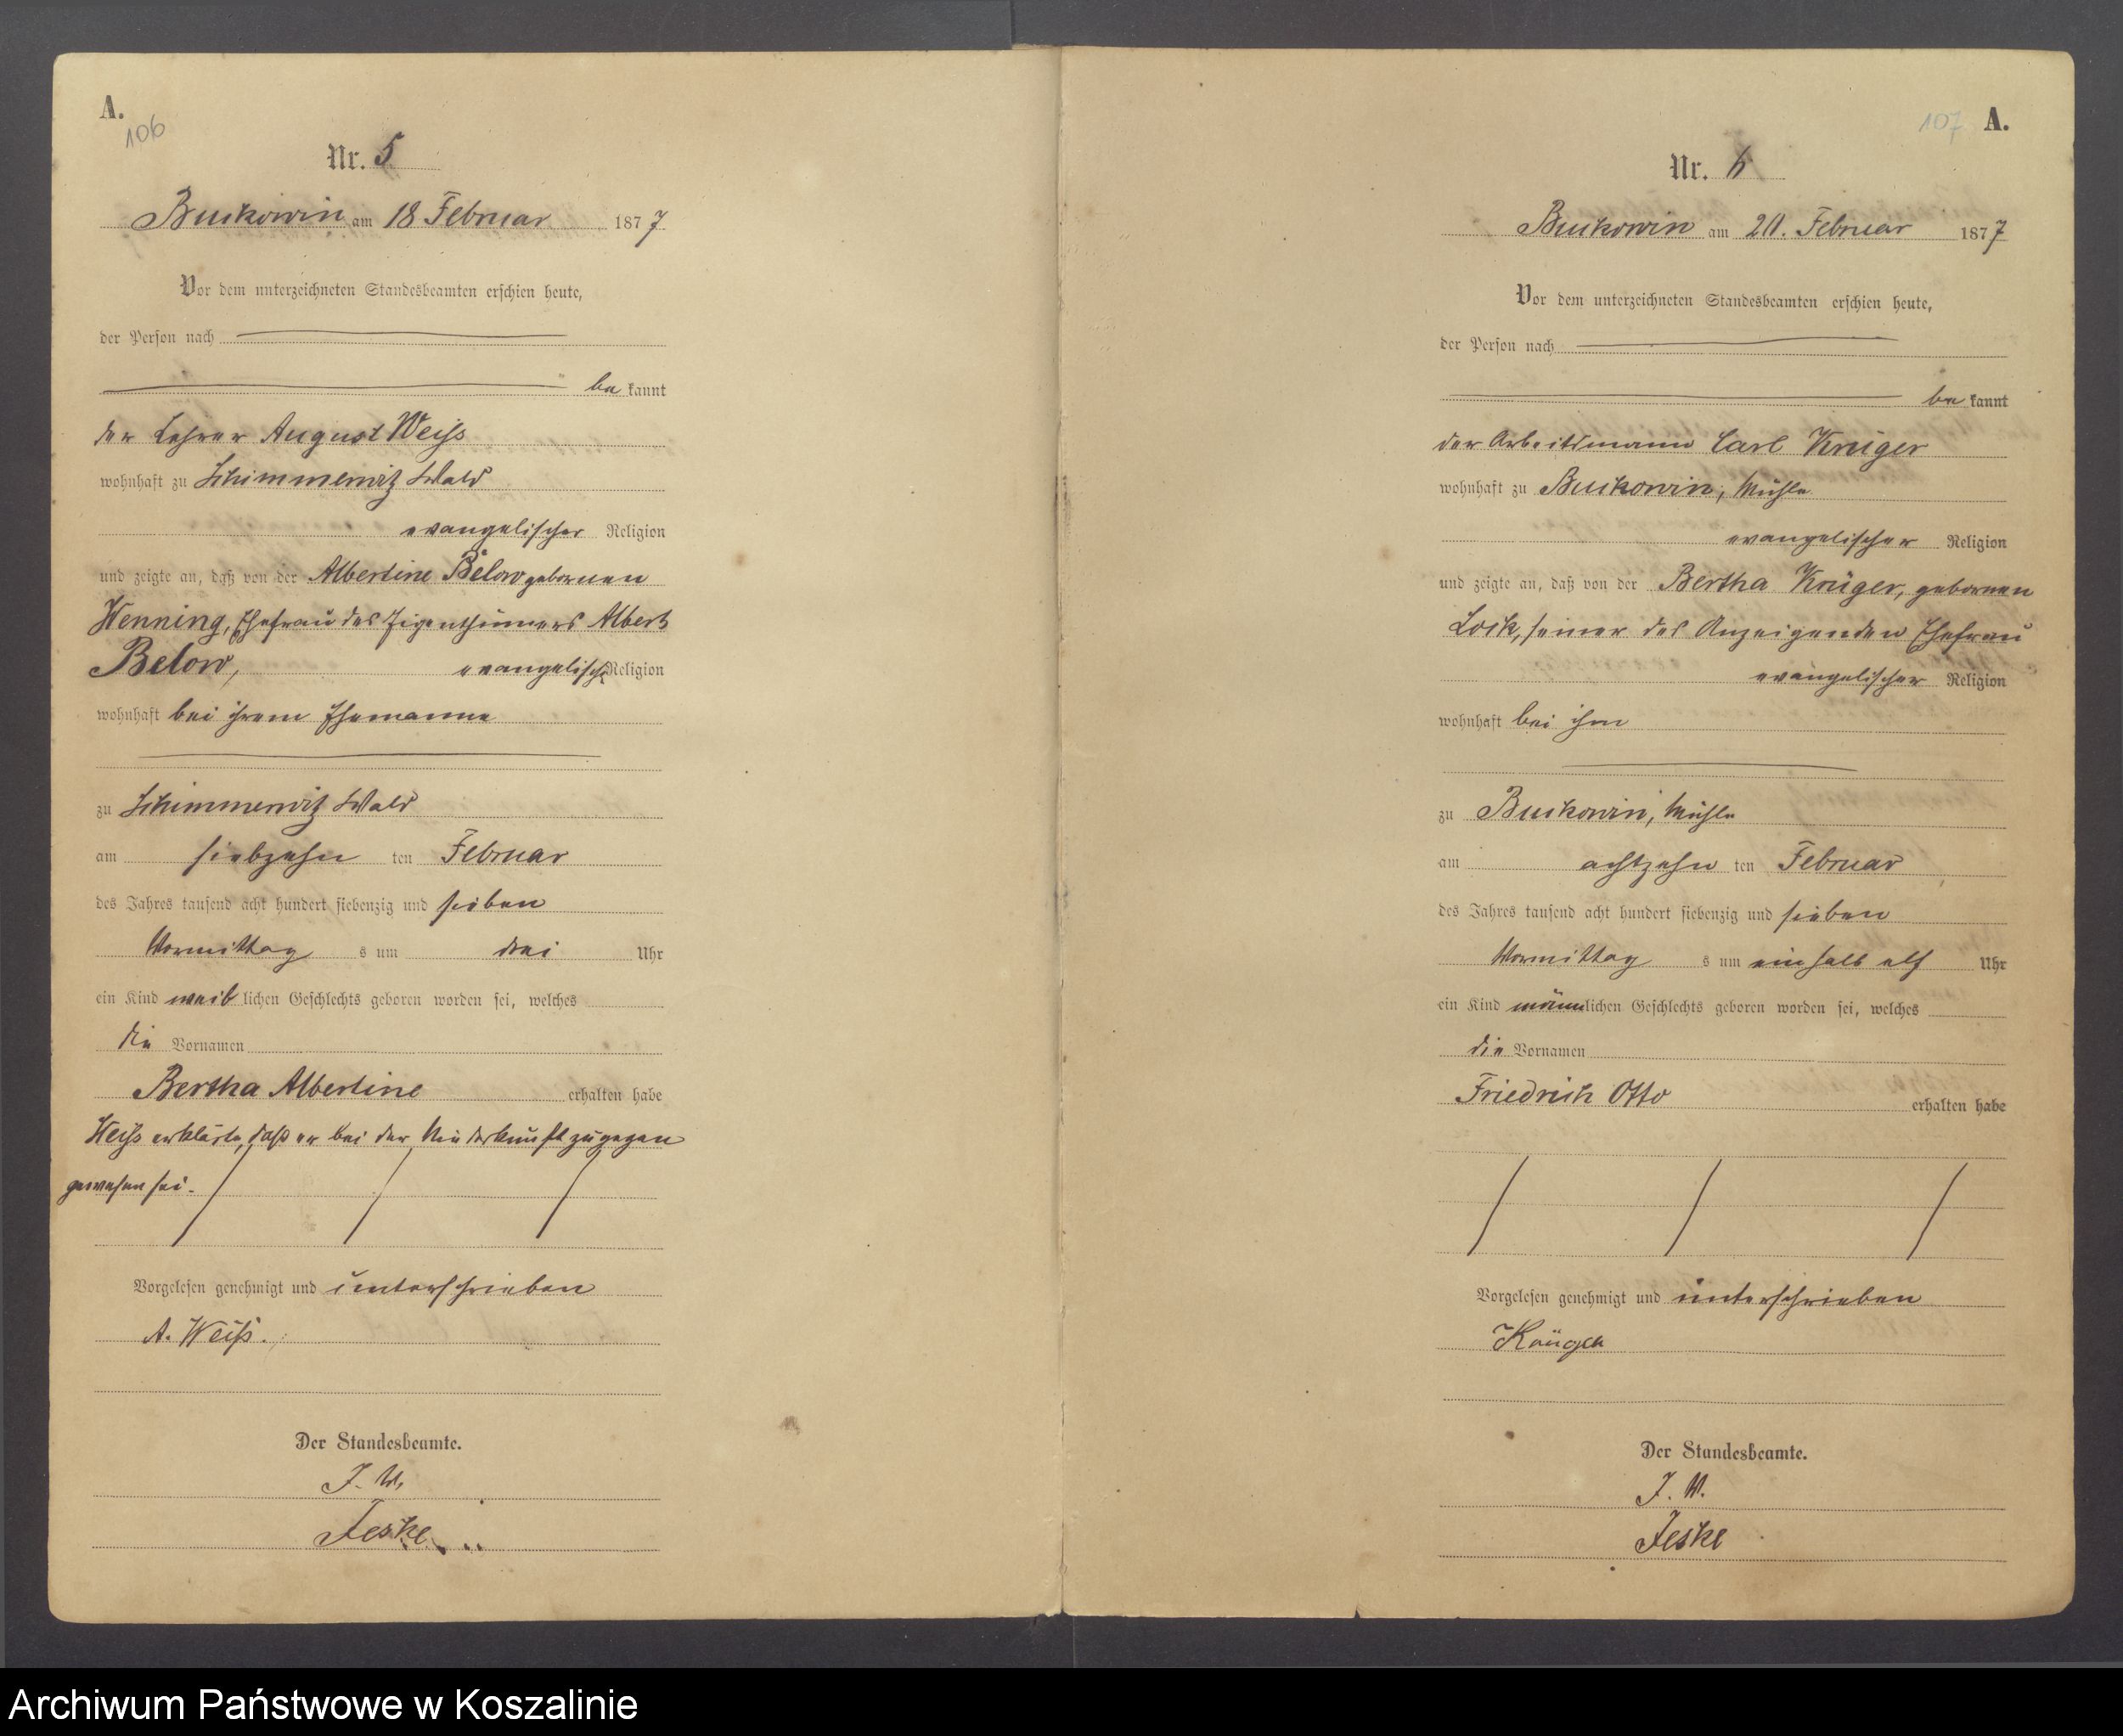 A.
106
Nr. 5
Buckowin am 18 Februar 1877
Vor dem unterzeichneten Standesbeamten erschien heute,
der Person nach
be kannt
der Lehrer August Weiß
wohnhaft zu Schimmerwitz Wald
evangelischer Religion
und zeigte an, daß von der Albertine Below gebornen
Wenning, Ehefrau des Eigenthümers Albert
Below, evangelisch Religion
wohnhaft bei ihrem Ehemanne
zu Schimmerwitz Wald
am siebzehn ten Februar
des Jahres tausend acht hundert siebenzig und sieben
Vormittag s um drei Uhr
ein Kind weib lichen Geschlechts geboren worden sei, welches
die Vornamen
Bertha Albertine erhalten habe
Weiß erklärte, daß er bei der Niederkunft zugegen
gewesen sei.
Vorgelesen genehmigt und unterschrieben
A. Weiß.
Der Standesbeamte.
J. V.
Jeske
107 A.
Nr. 6
Buckowin am 20. Februar 1877
Vor dem unterzeichneten Standesbeamten erschien heute,
der Person nach
be kannt
der Arbeitsmann Carl Krüger
wohnhaft zu Buckowin, Mühle
evangelischer Religion
und zeigte an, daß von der Bertha Krüger, gebornen
Lock, seiner des Anzeigenden Ehefrau
evangelischer Religion
wohnhaft bei ihm
zu Buckowin, Mühle
am achtzehn ten Februar
des Jahres tausend acht hundert siebenzig und sieben
Vormittag s um ein halb elf Uhr
ein Kind männlichen Geschlechts geboren worden sei, welches
die Vornamen
Friedrich Otto erhalten habe
Vorgelesen genehmigt und unterschrieben
Krüger
Der Standesbeamte.
J. V.
Jeske
Archiwum Państwowe w Koszalinie